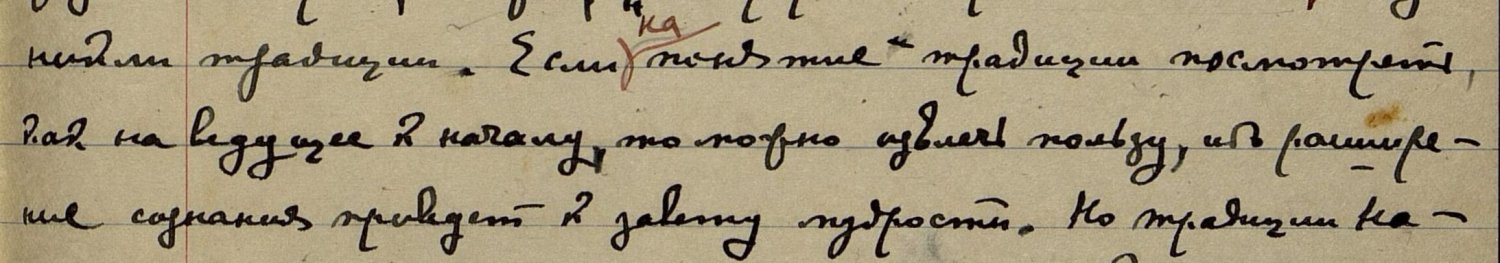 нили традиции. Если на понятие традиции посмотреть,
как на ведущее к началу, то можно извлечь пользу, ибо расшире-
ние сознания приведет к завету мудрости. Но традиции на-